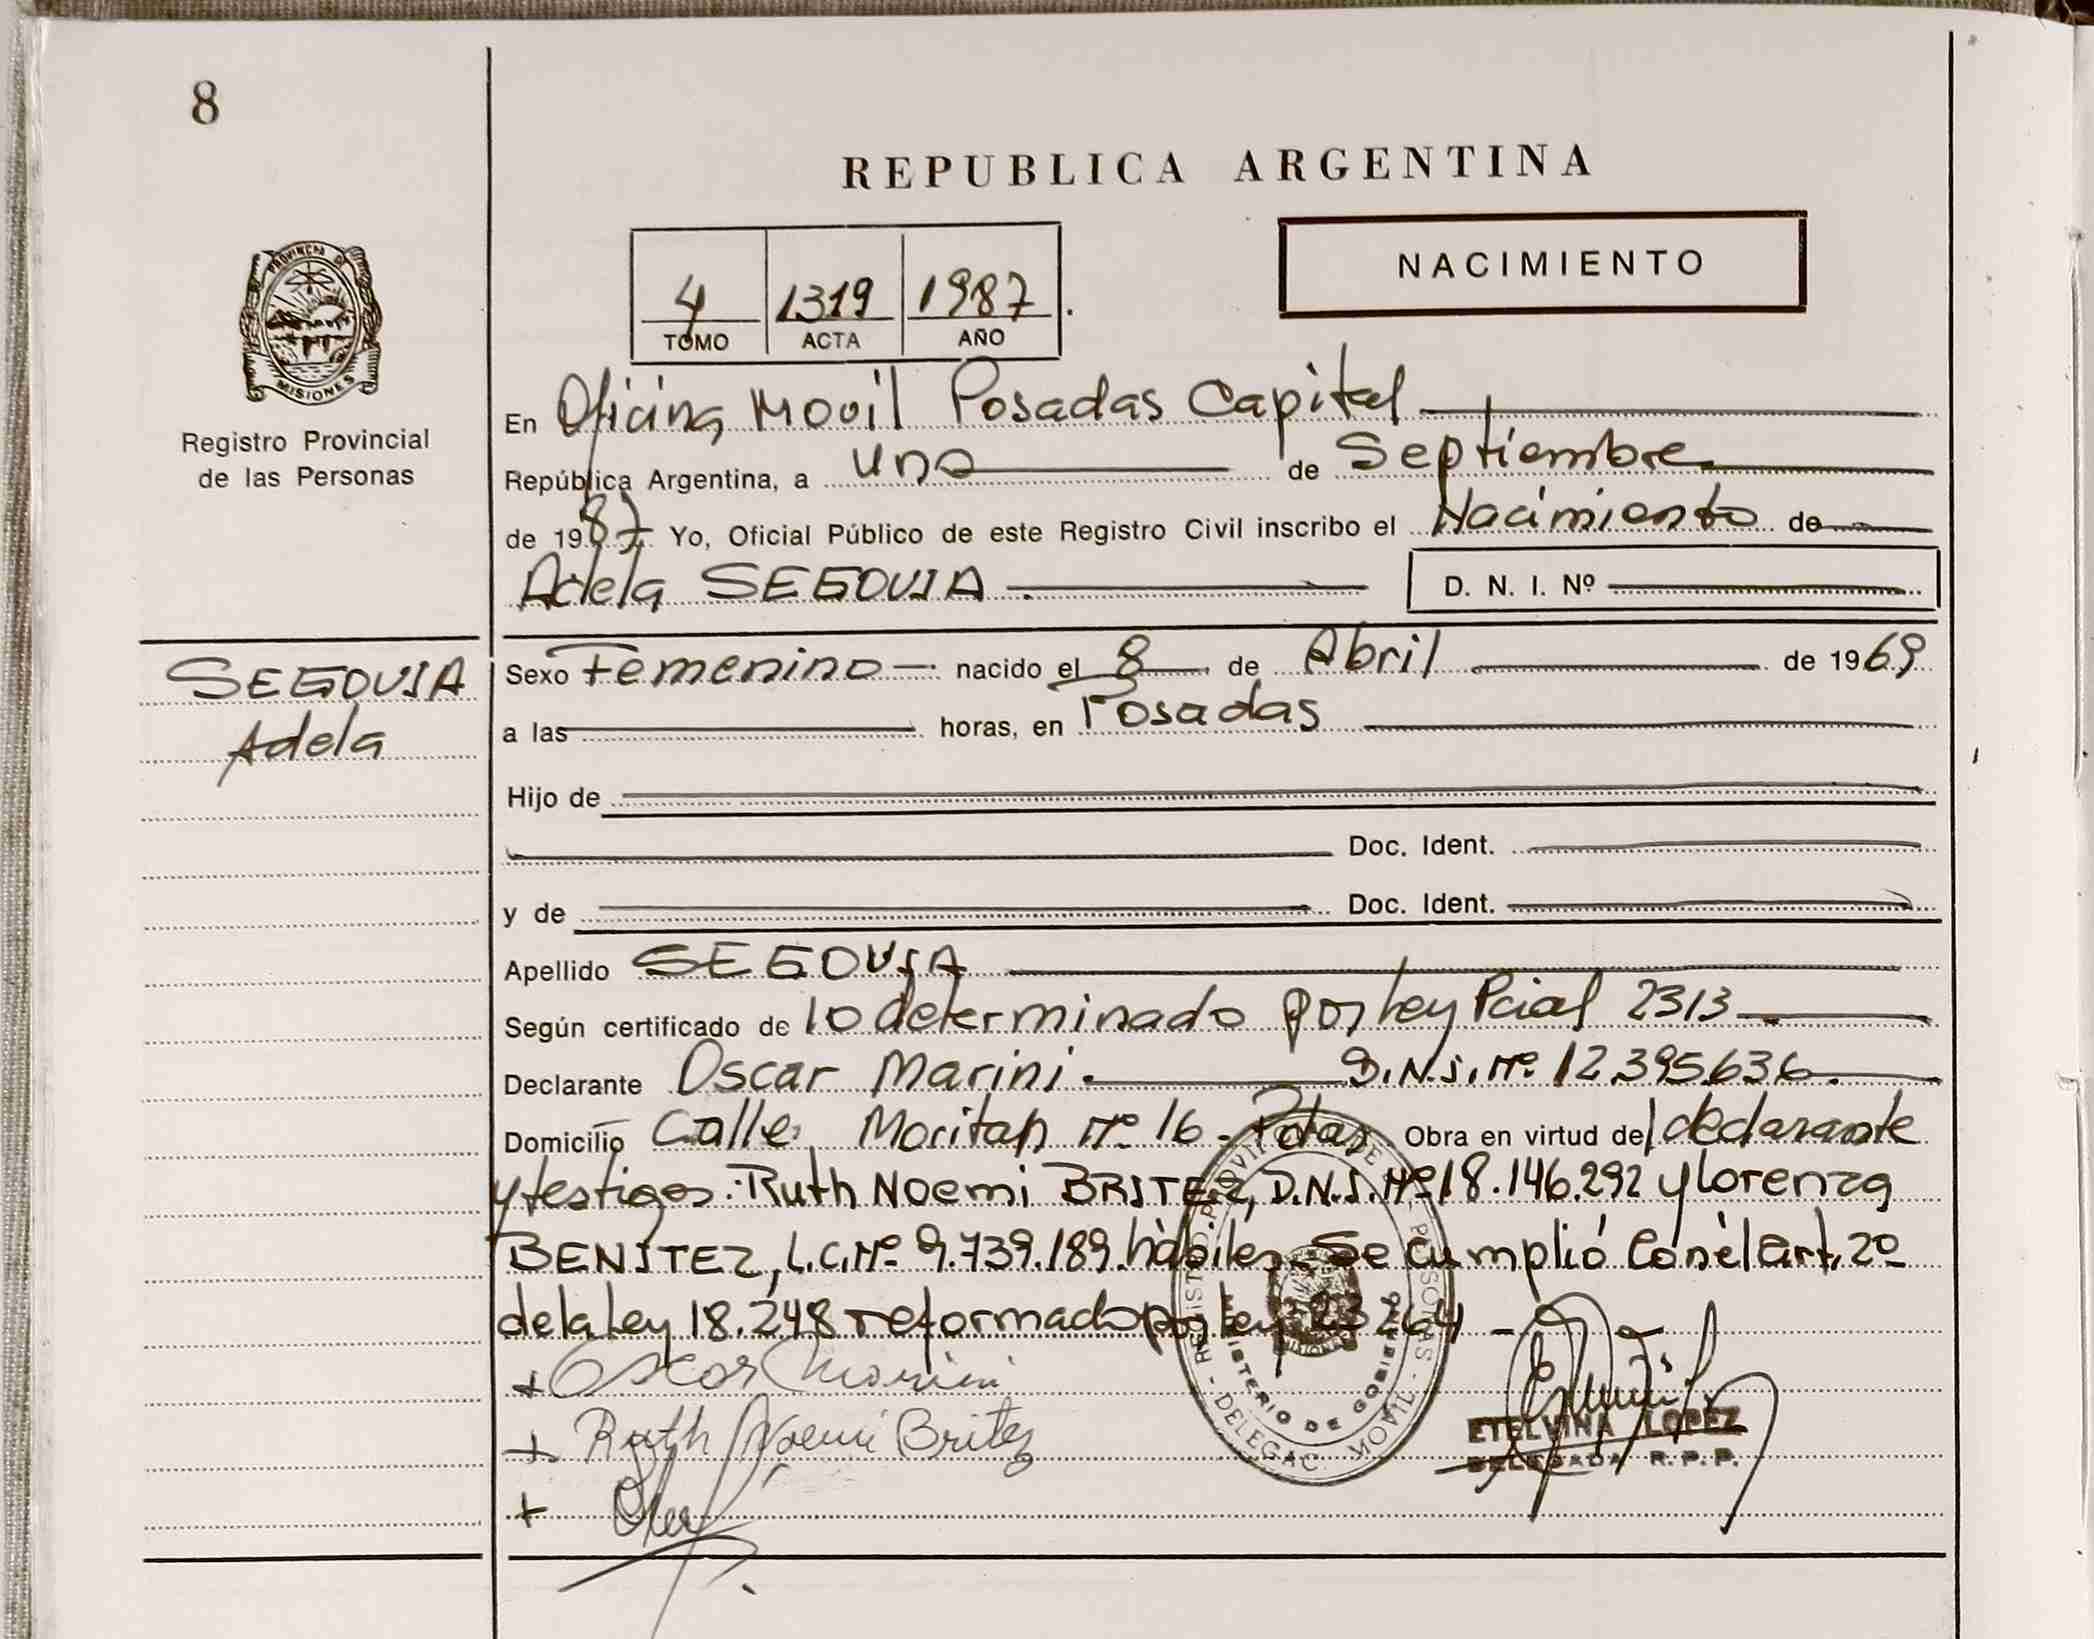 8
REPUBLICA ARGENTINA
NACIMIENTO
4 1319 1987
TOMO ACTA AÑO
PROVINCIA DE
MISIONES
Registro Provincial
de las Personas
En Oficina Movil Posadas Capital
República Argentina, a uno de Septiembre
de 1987 Yo, Oficial Público de este Registro Civil inscribo el Nacimiento de
Adela SEGOVIA D. N. I. Nº
SEGOVIA
Adela
Sexo Femenino nacido el 8 de Abril de 1969
a las horas, en Posadas
Hijo de
Doc. Ident.
y de Doc. Ident.
Apellido SEGOVIA
Según certificado de lo determinado por Ley Pcial 2313
Declarante Oscar Marini. D.N.I. Nº 12.395.636.
Domicilio Calle Nº 16 - Pdas Obra en virtud del declarante
y testigos: Ruth Noemi BRITEZ, D.N.I. Nº 18.146.292 y Lorenza
BENITEZ, L.C. Nº 9.739.189 hàbiles. Se cumplió con èl art. 2º
de la Ley 18.248 reformado por Ley 23264
Oscar Marini
Ruth Noemi Britez
REGISTRO PROVINCIAL DE LAS PERSONAS - DELEGAC. MOVIL -
MINISTERIO DE GOBIERNO
ETELVINA LOPEZ
DELEGADA R.P.P.